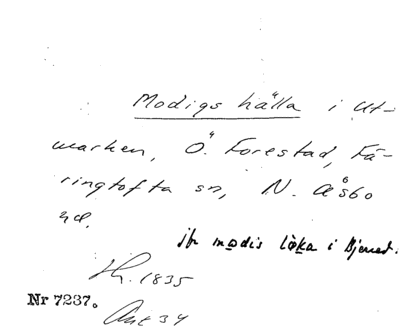 Modigs hälla i Ut-
marken, Ö. Forestad, Fä-
ringtofta sn, N. Åsbo
hd.
jfr modis löka i Bjerred.
Lh. 1835
Nr 7237.
Ant 34